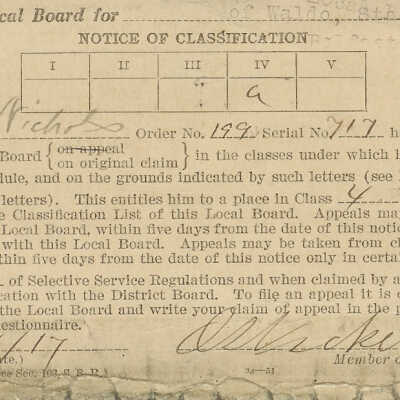 cal Board for of Waldo, St
NOTICE OF CLASSIFICATION
I II III IV V
a
Nichols Order No. 199 Serial No. 717 h
Board { on appeal
on original claim } in the classes under which h
dule, and on the grounds indicated by such letters (see
letters). This entitles him to a place in Class 4
e Classification List of this Local Board. Appeals may
Local Board, within five days from the date of this notice
with this Local Board. Appeals may be taken from cl
thin five days from the date of this notice only in certai
. of Selective Service Regulations and when claimed by a
cation with the District Board. To file an appeal it is o
the Local Board and write your claim of appeal in the p
estionnaire.
17
ate.) Member o
ce Sec. 103, S. S. R.) 3—51